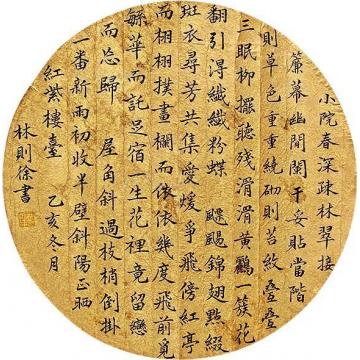 小院春深疎林翠接
簾幕幽閒闌干妥貼當階
則草色重重繞砌則苔紋疊疊
三眠柳擺聽殘滑滑黃鸝一簇花
翻引得纖纖粉蝶颸颸錦翅點綴
斑衣尋芳共集愛媛爭飛傍紅亭
而栩栩撲畫欄而依依幾度飛前覓
蘇華而託足宿一生花裡竟留戀
而忘歸屋角斜過枝梢倒掛
一番新雨初收半壁斜陽正晒
紅紫樓臺乙亥冬月
林則徐書